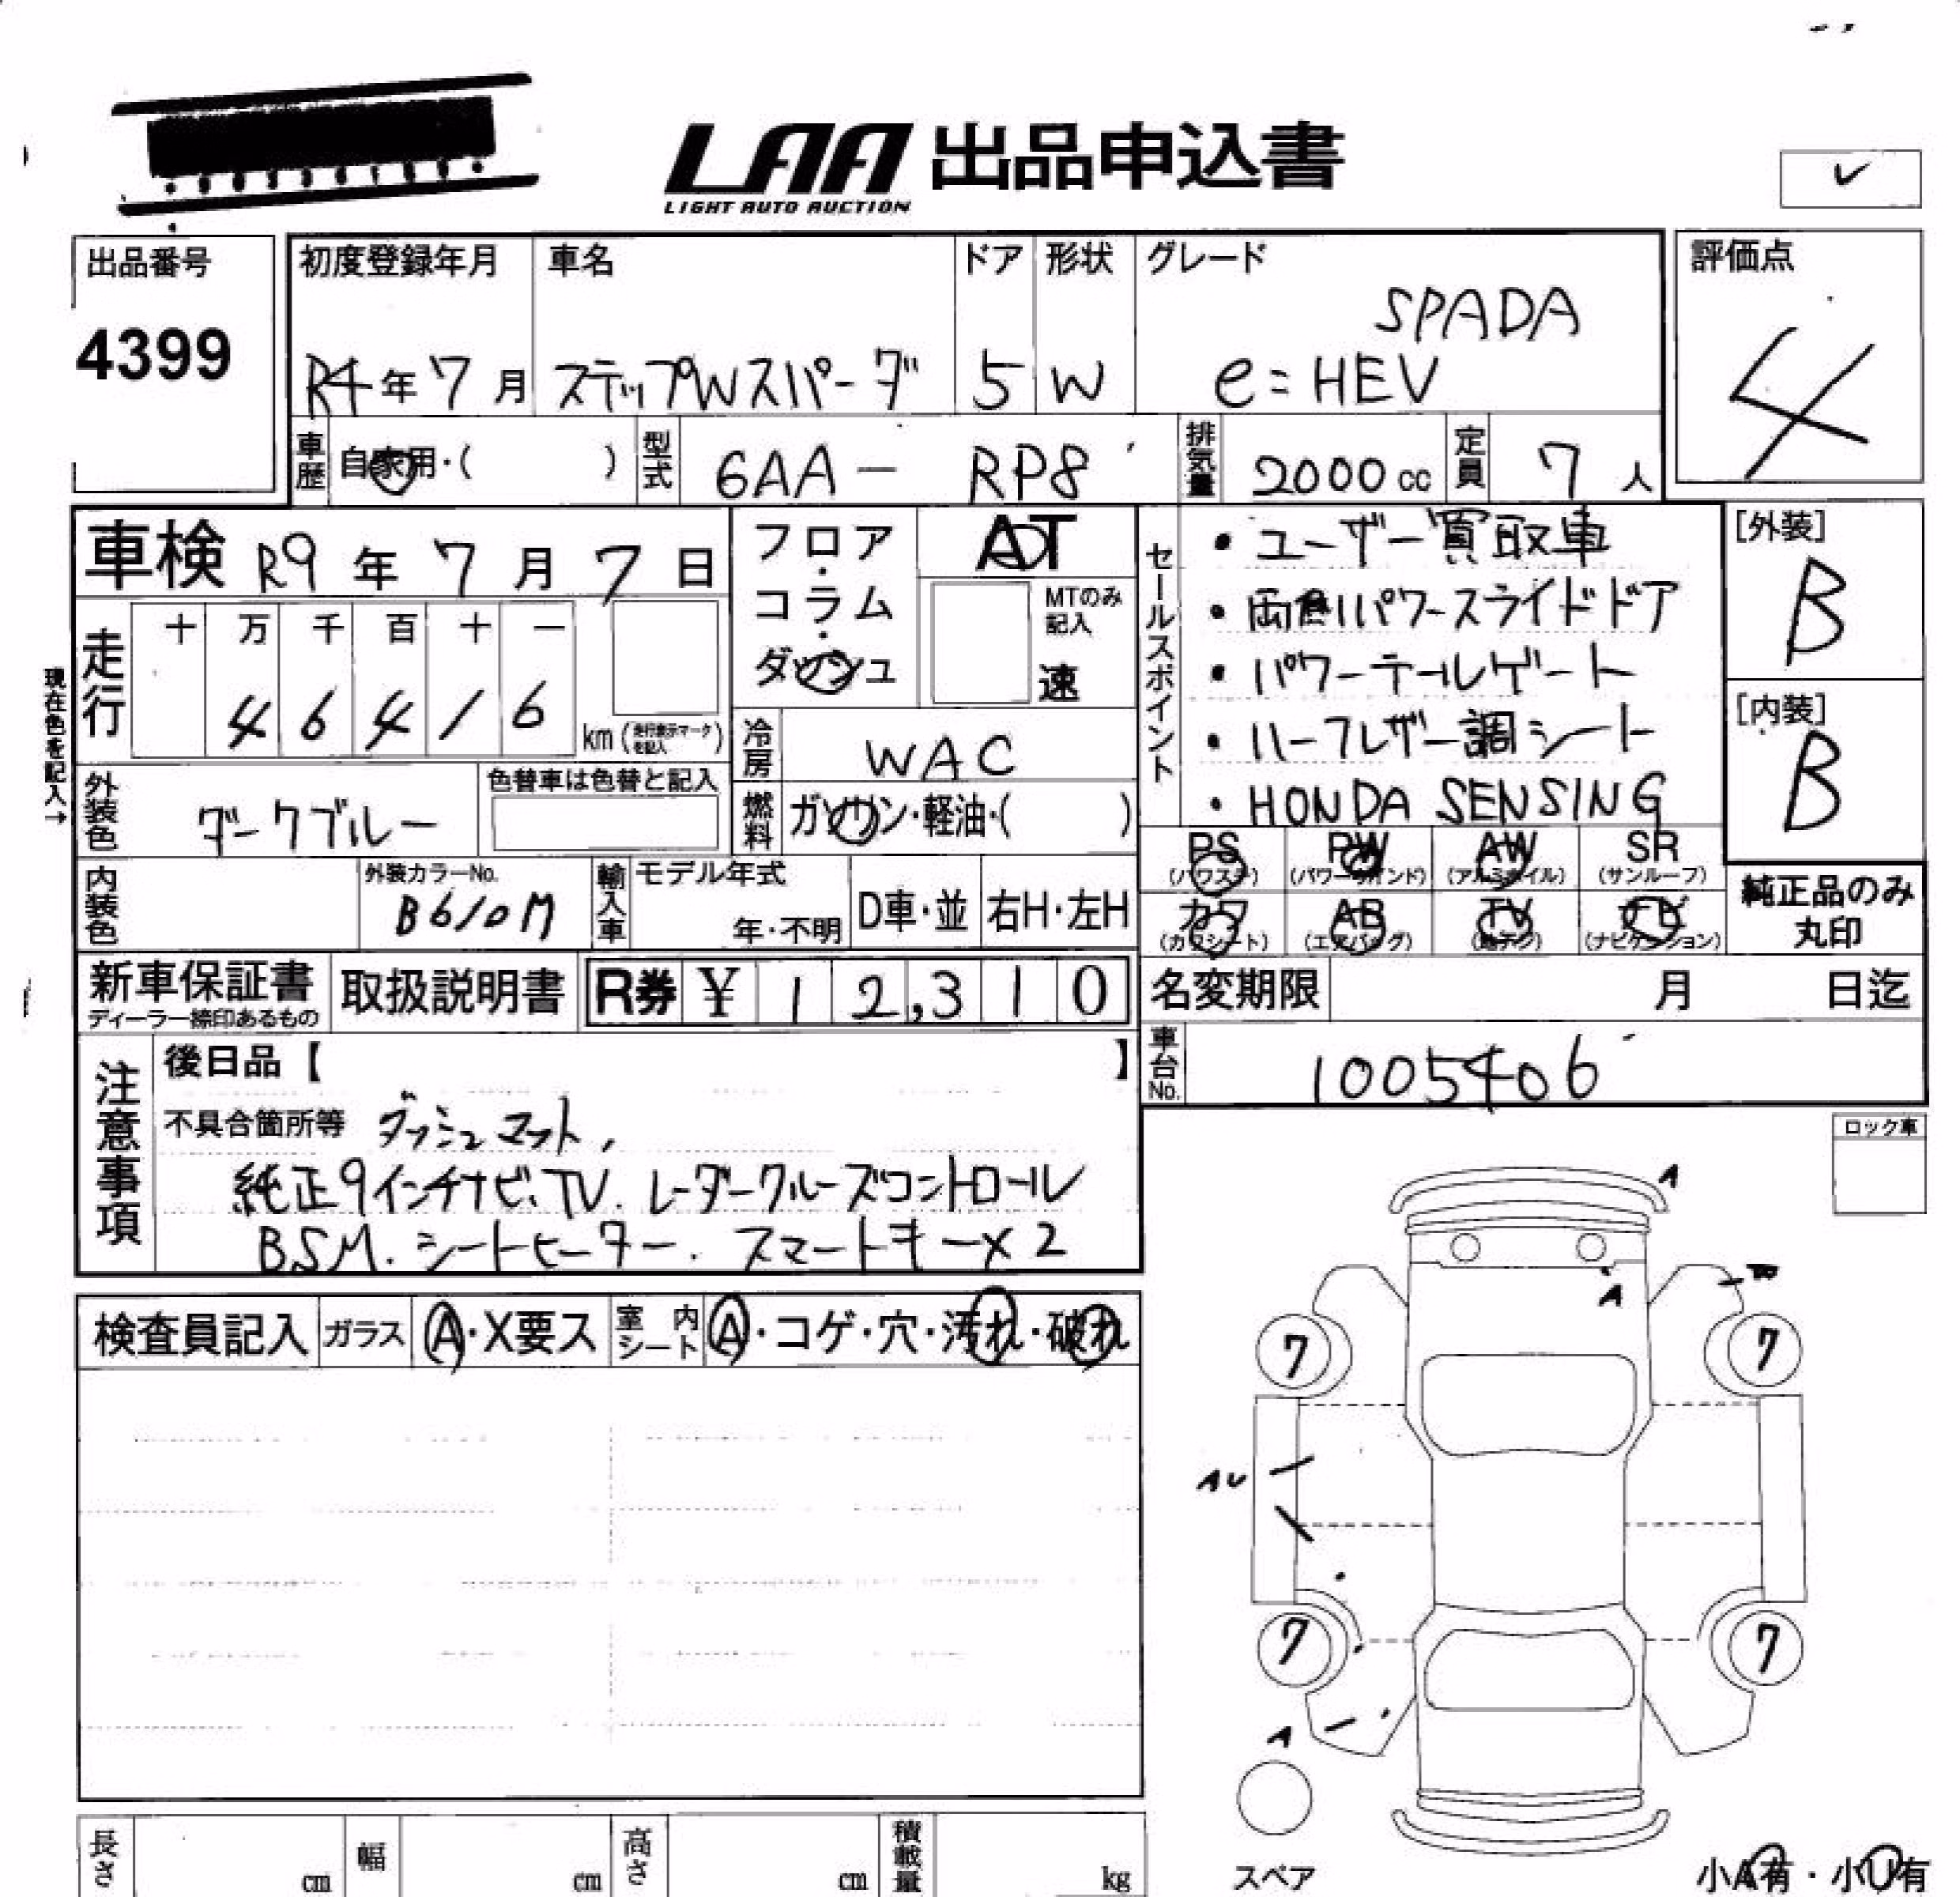 LAA 出品申込書
LIGHT AUTO AUCTION
出品番号
4399
初度登録年月
R4年7月
車名
ステップWスパーダ
ドア
5
形状
W
グレード
SPADA
e:HEV
評価点
4
車歴 自家用・( )
型式 6AA - RP8
排気量 2000cc
定員 7人
車検 R9年7月7日
フロア・コラム・ダッシュ
AT
MTのみ記入
速
走行
十 万 千 百 十 一
4 6 4 1 6
km(走行表示マークを記入)
現在色を記入→
冷房 WAC
外装色 ダークブルー
色替車は色替と記入
燃料 ガソリン・軽油・( )
内装色
外装カラーNo.
B610M
輸入車 モデル年式
年・不明
D車・並
右H・左H
セールスポイント
・ユーザー買取車
・両側パワースライドドア
・パワーテールゲート
・ハーフレザー調シート
・HONDA SENSING
[外装]
B
[内装]
B
PS (パワステ) PW (パワーウインド) AW (アルミホイル) SR (サンルーフ)
カワ (カワシート) AB (エアバッグ) TV (地デジ) ナビ (ナビゲーション)
純正品のみ
丸印
新車保証書
ディーラー捺印あるもの
取扱説明書
R券 ¥ 12,310
名変期限 月 日迄
車台No. 1005406
注意事項
後日品【 】
不具合箇所等 ダッシュマット,
純正9インチナビ、TV. レーダークルーズコントロール
BSM. シートヒーター. スマートキー×2
ロック車
検査員記入 ガラス A・X要ス 室内シート A・コゲ・穴・汚れ・破れ
A
A
7 7
AU
7 7
A
スペア
小A有・小U有
長さ cm 幅 cm 高さ cm 積載量 kg